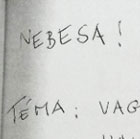 NEBESA!
TÉMA: VAG